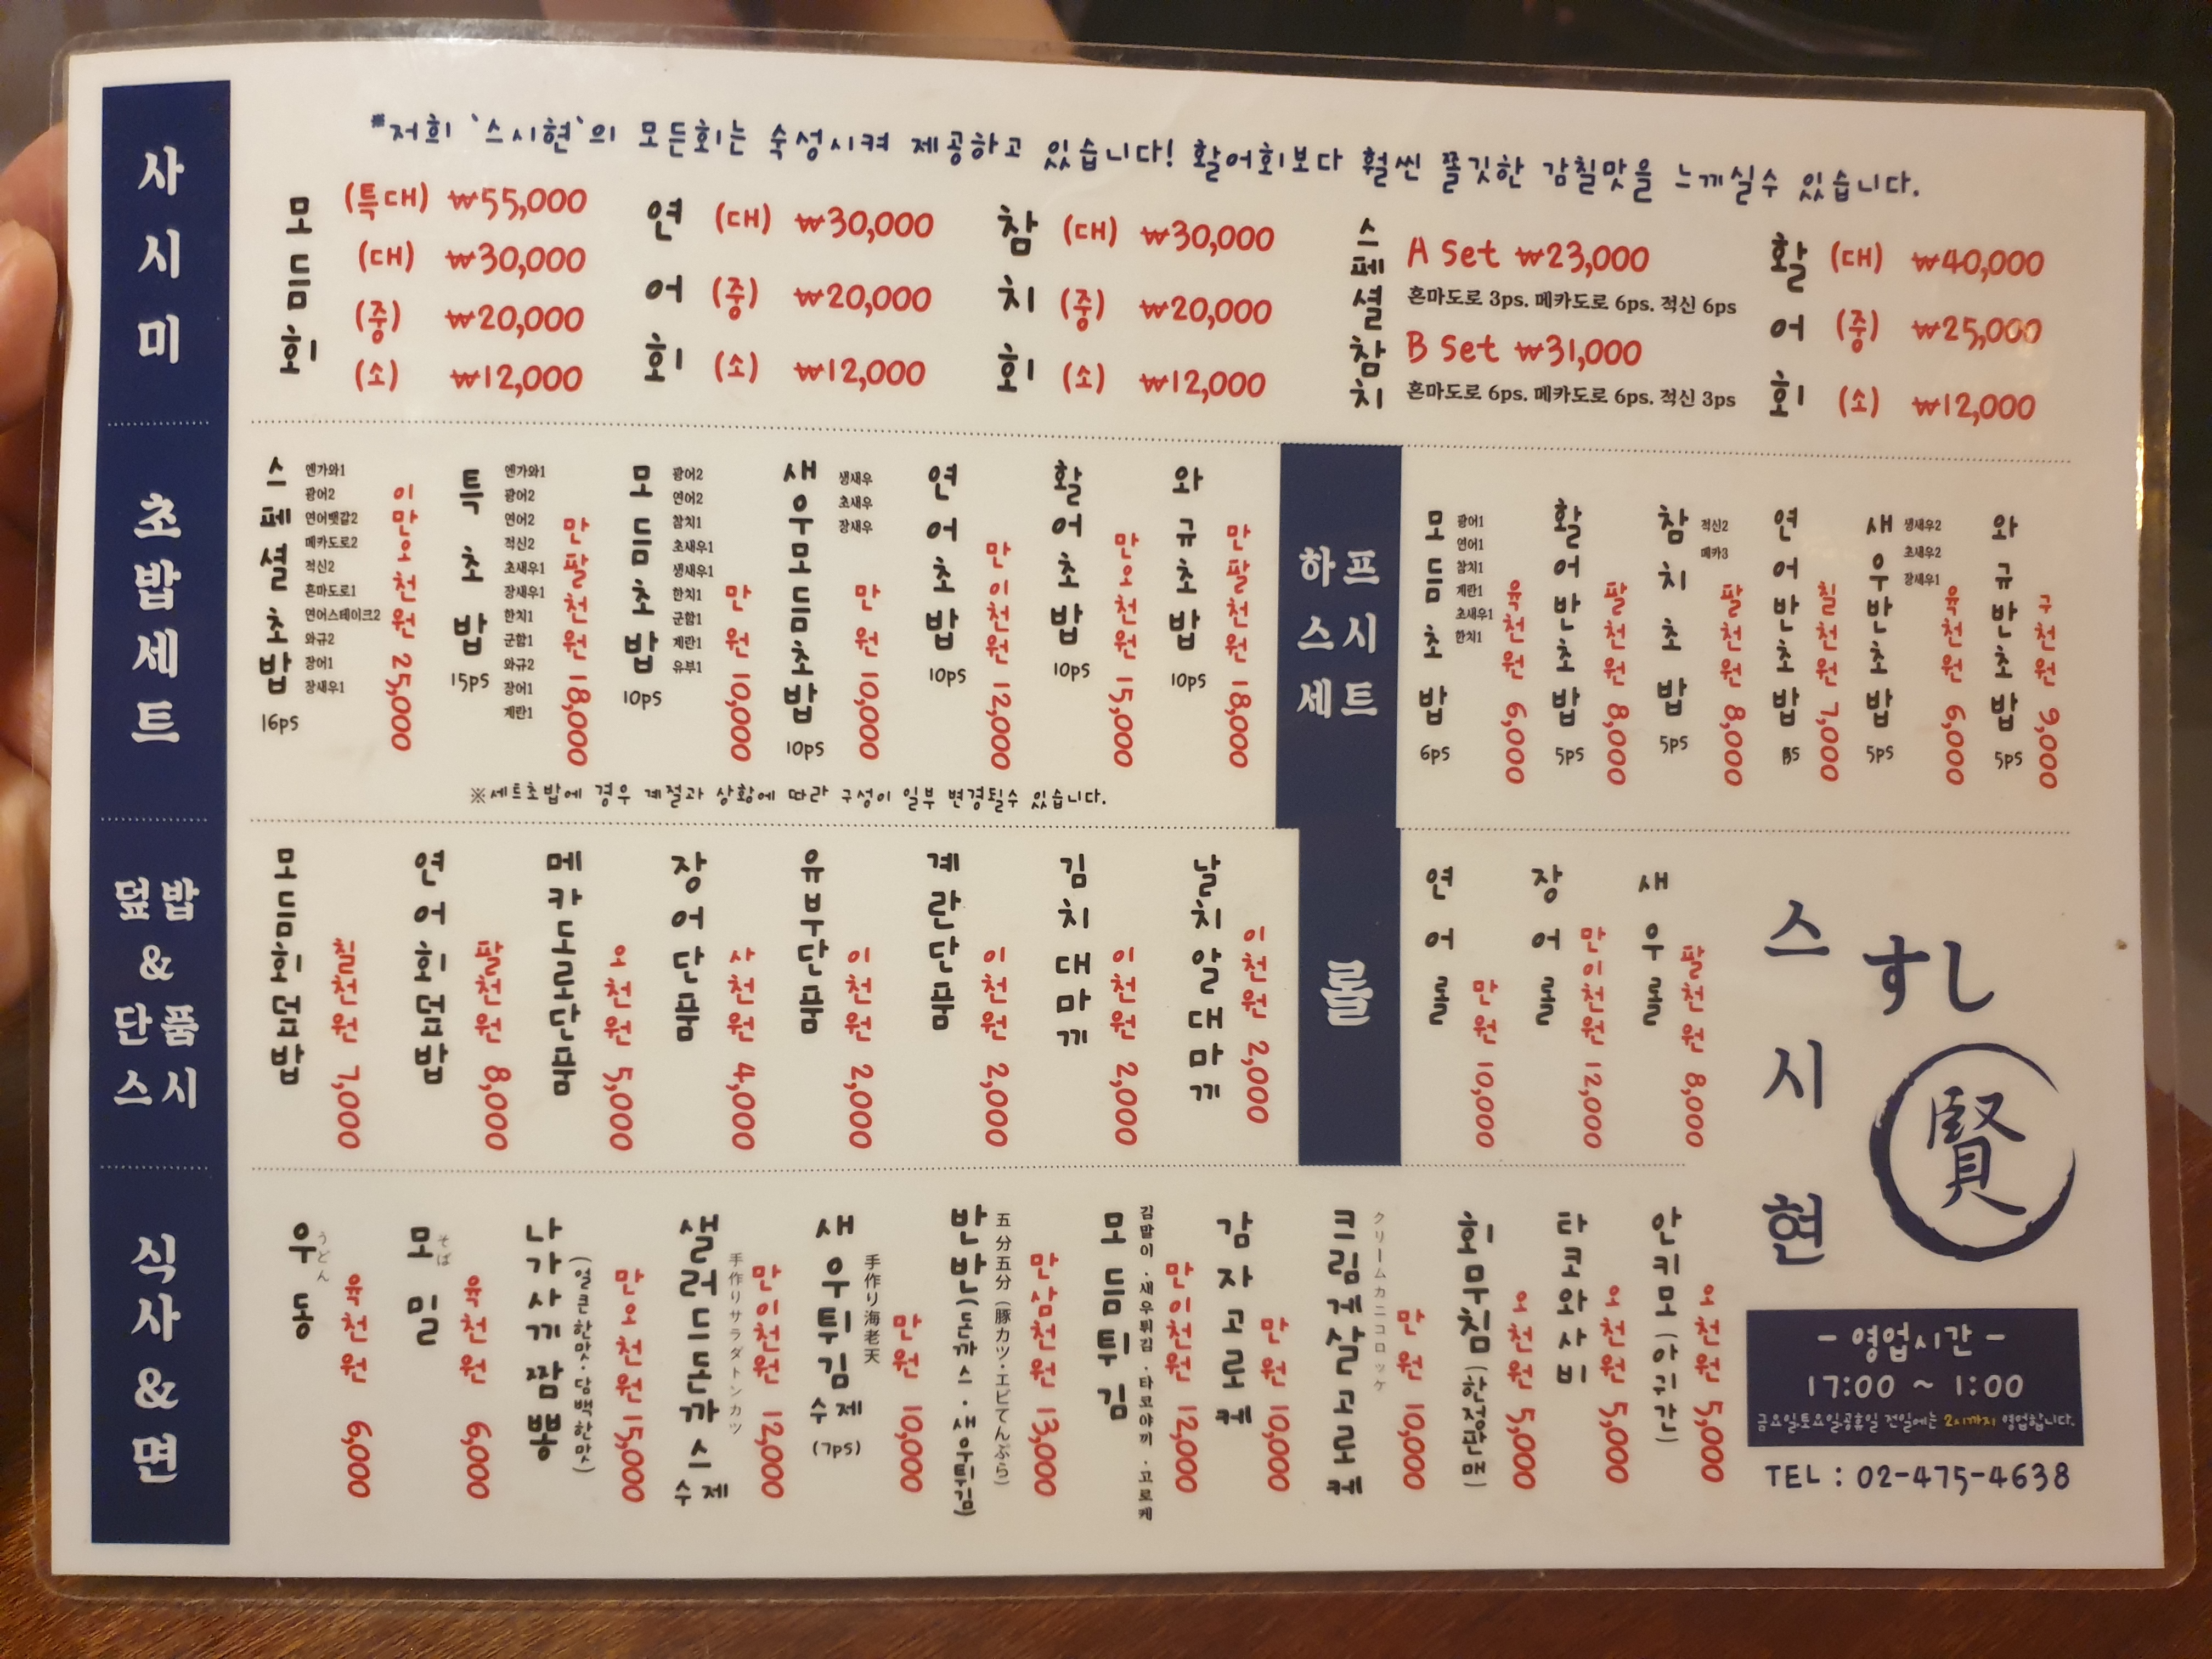 사시미
*저희 `스시현`의 모든회는 숙성시켜 제공하고 있습니다! 활어회보다 훨씬 쫄깃한 감칠맛을 느끼실수 있습니다.
모듬회
(특대) ₩55,000
(대) ₩30,000
(중) ₩20,000
(소) ₩12,000
연어회
(대) ₩30,000
(중) ₩20,000
(소) ₩12,000
참치회
(대) ₩30,000
(중) ₩20,000
(소) ₩12,000
스페셜참치
A set ₩23,000
혼마도로 3ps. 메카도로 6ps. 적신 6ps
B set ₩31,000
혼마도로 6ps. 메카도로 6ps. 적신 3ps
활어회
(대) ₩40,000
(중) ₩25,000
(소) ₩12,000
초밥세트
스페셜초밥
16ps
엔가와1
광어2
연어뱃갈2
메카도로2
적신2
혼마도로1
연어스테이크2
와규2
장어1
장새우1
이만오천원 25,000
특초밥
15ps
엔가와1
광어2
연어2
적신2
초새우1
장새우1
한치1
군함1
와규2
장어1
계란1
만팔천원 18,000
모듬초밥
10ps
광어2
연어2
참치1
초새우1
생새우1
한치1
군함1
계란1
유부1
만원 10,000
새우모듬초밥
10ps
생새우
초새우
장새우
만원 10,000
연어초밥
10ps
만이천원 12,000
활어초밥
10ps
만오천원 15,000
와규초밥
10ps
만팔천원 18,000
※세트초밥에 경우 계절과 상황에 따라 구성이 일부 변경될수 있습니다.
하프
스시
세트
모듬초밥
6ps
광어1
연어1
참치1
계란1
초새우1
한치1
육천원 6,000
활어반초밥
5ps
팔천원 8,000
참치초밥
5ps
적신2
메카3
팔천원 8,000
연어반초밥
칠천원 7,000
새우반초밥
5ps
생새우2
초새우2
장새우1
육천원 6,000
와규반초밥
5ps
구천원 9,000
덮밥
&
단품
스시
모듬회덮밥
칠천원 7,000
연어회덮밥
팔천원 8,000
메카도로단품
오천원 5,000
장어단품
사천원 4,000
유부단품
이천원 2,000
계란단품
이천원 2,000
김치대마끼
이천원 2,000
날치알대마끼
이천원 2,000
롤
연어롤
만원 10,000
장어롤
만이천원 12,000
새우롤
팔천원 8,000
식사&면
우동
うどん
육천원 6,000
모밀
そば
육천원 6,000
나가사끼짬뽕
(얼큰한맛·담백한맛)
만오천원 15,000
샐러드돈까스 수제
手作りサラダトンカツ
만이천원 12,000
새우튀김 수제
(7ps)
手作り海老天
만원 10,000
반반(돈까스·새우튀김)
五分五分 (豚カツ・エビてんぷら)
만삼천원 13,000
모듬튀김
김말이·새우튀김·타코야끼·고로케
만이천원 12,000
감자고로케
만원 10,000
크림게살고로케
クリームカニコロッケ
만원 10,000
회무침(한정판매)
오천원 5,000
타코와사비
오천원 5,000
안키모(아귀간)
오천원 5,000
스시현
すし
賢
- 영업시간 -
17:00 ~ 1:00
금요일,토요일,공휴일 전일에는 2시까지 영업합니다.
TEL : 02-475-4638